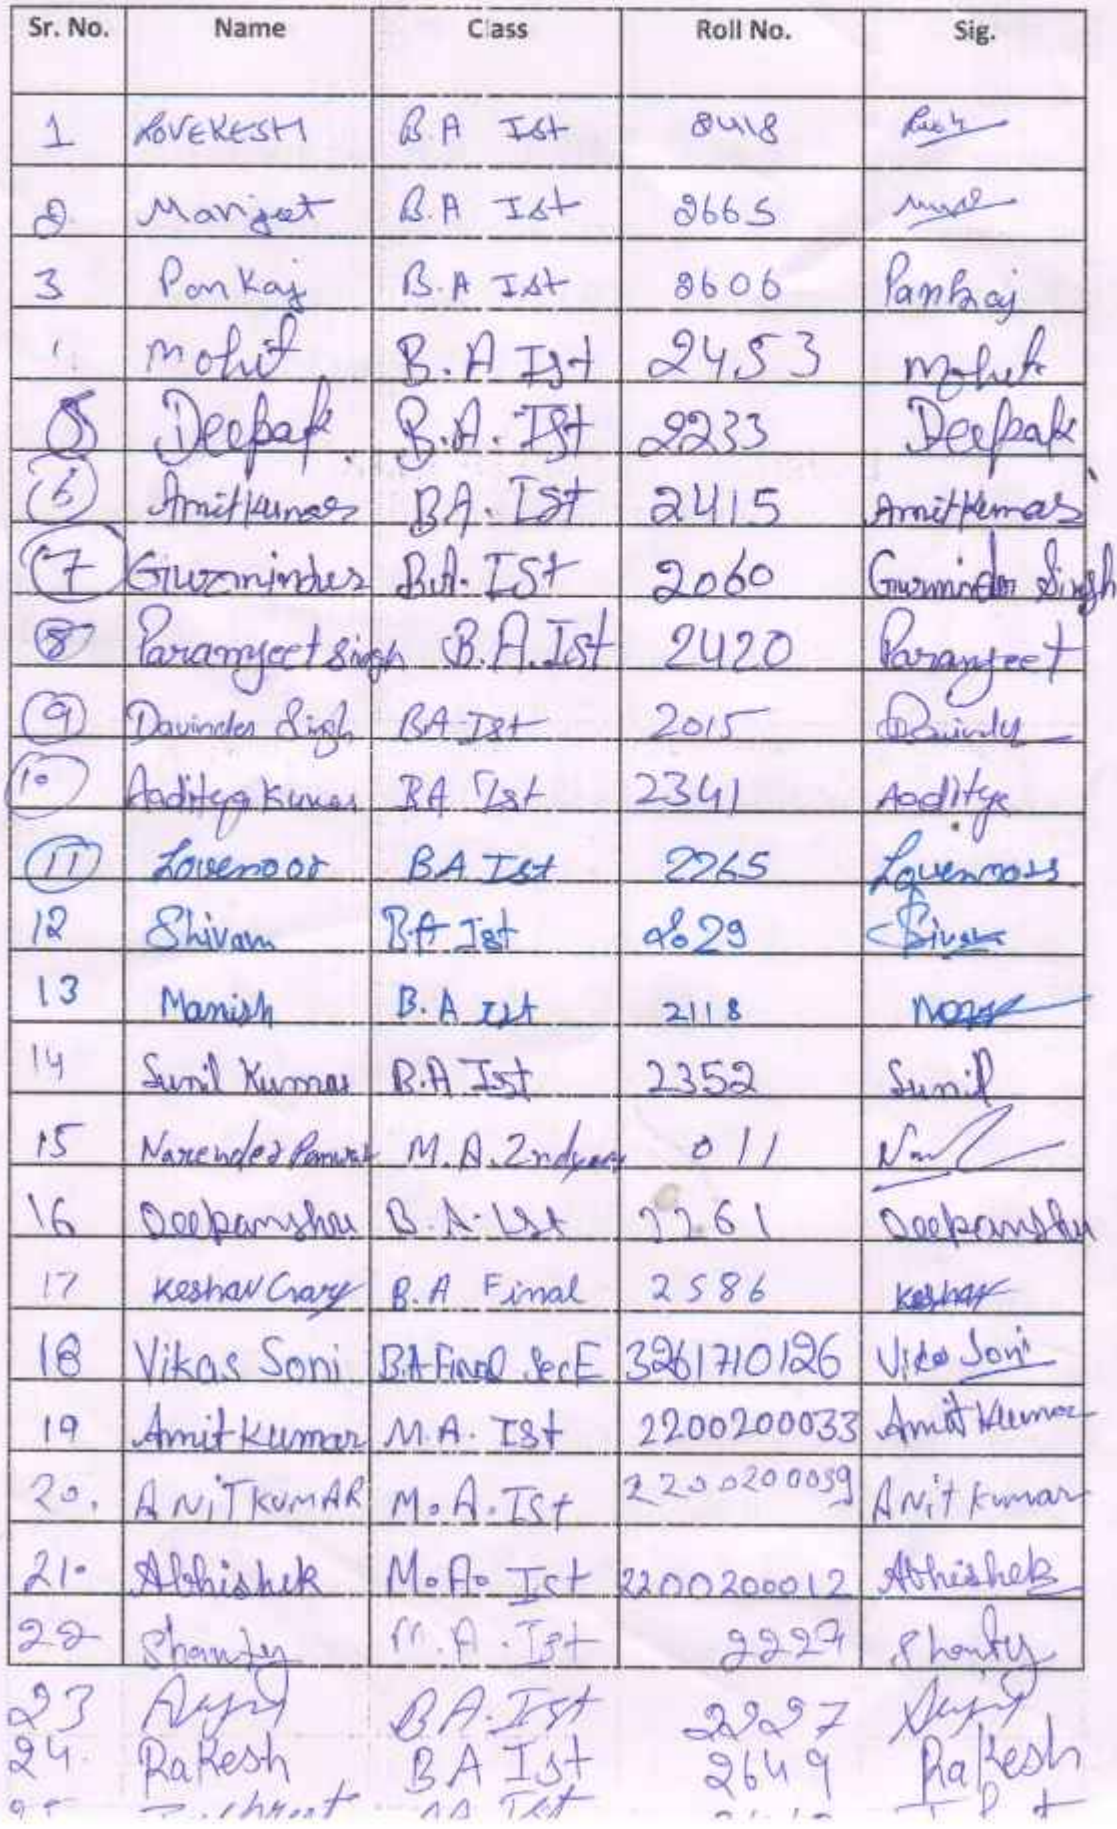 Sr. No. Name Class Roll No. Sig.
1 LOVEKESH B.A Ist 2418
2 Manjeet B.A Ist 2665
3 Pankaj B.A Ist 2606 Pankaj
Mohit B.A Ist 2453 Mohit
5 Deepak B.A. Ist 2233 Deepak
6 Amit Kumar BA. Ist 2415 Amit Kumar
7 Gurminder B.A. Ist 2060 Gurminder Singh
8 Paramjeet Singh B.A. Ist 2420 Paramjeet
9 Davinder Sigh BA Ist 2015 Davinder
10 Aaditya Kumar BA Ist 2341 Aaditya
11 Lovenoor BA Ist 2265 Lovenoor
12 Shivam BA Ist 2029
13 Manish B.A Ist 2118
14 Sunil Kumar B.A Ist 2352 Sunil
15 Narender Panwar M.A. 2ndyear 011
16 Deepanshu B.A. Ist 2261 Deepanshu
17 Keshav Garg B.A Final 2586 Keshav
18 Vikas Soni BA Final Sec E 3261710126 Soni
19 Amit Kumar M.A. Ist 2200200033 Amit Kumar
20. ANiT KUMAR M.A. Ist 2200200039 ANit Kumar
21. Abhishek M.A. Ist 2200200012 Abhishek
22 Shanty M.A. Ist 2227 Shanty
23 BA. Ist 2227
24. Rakesh BA Ist 2649 Rakesh